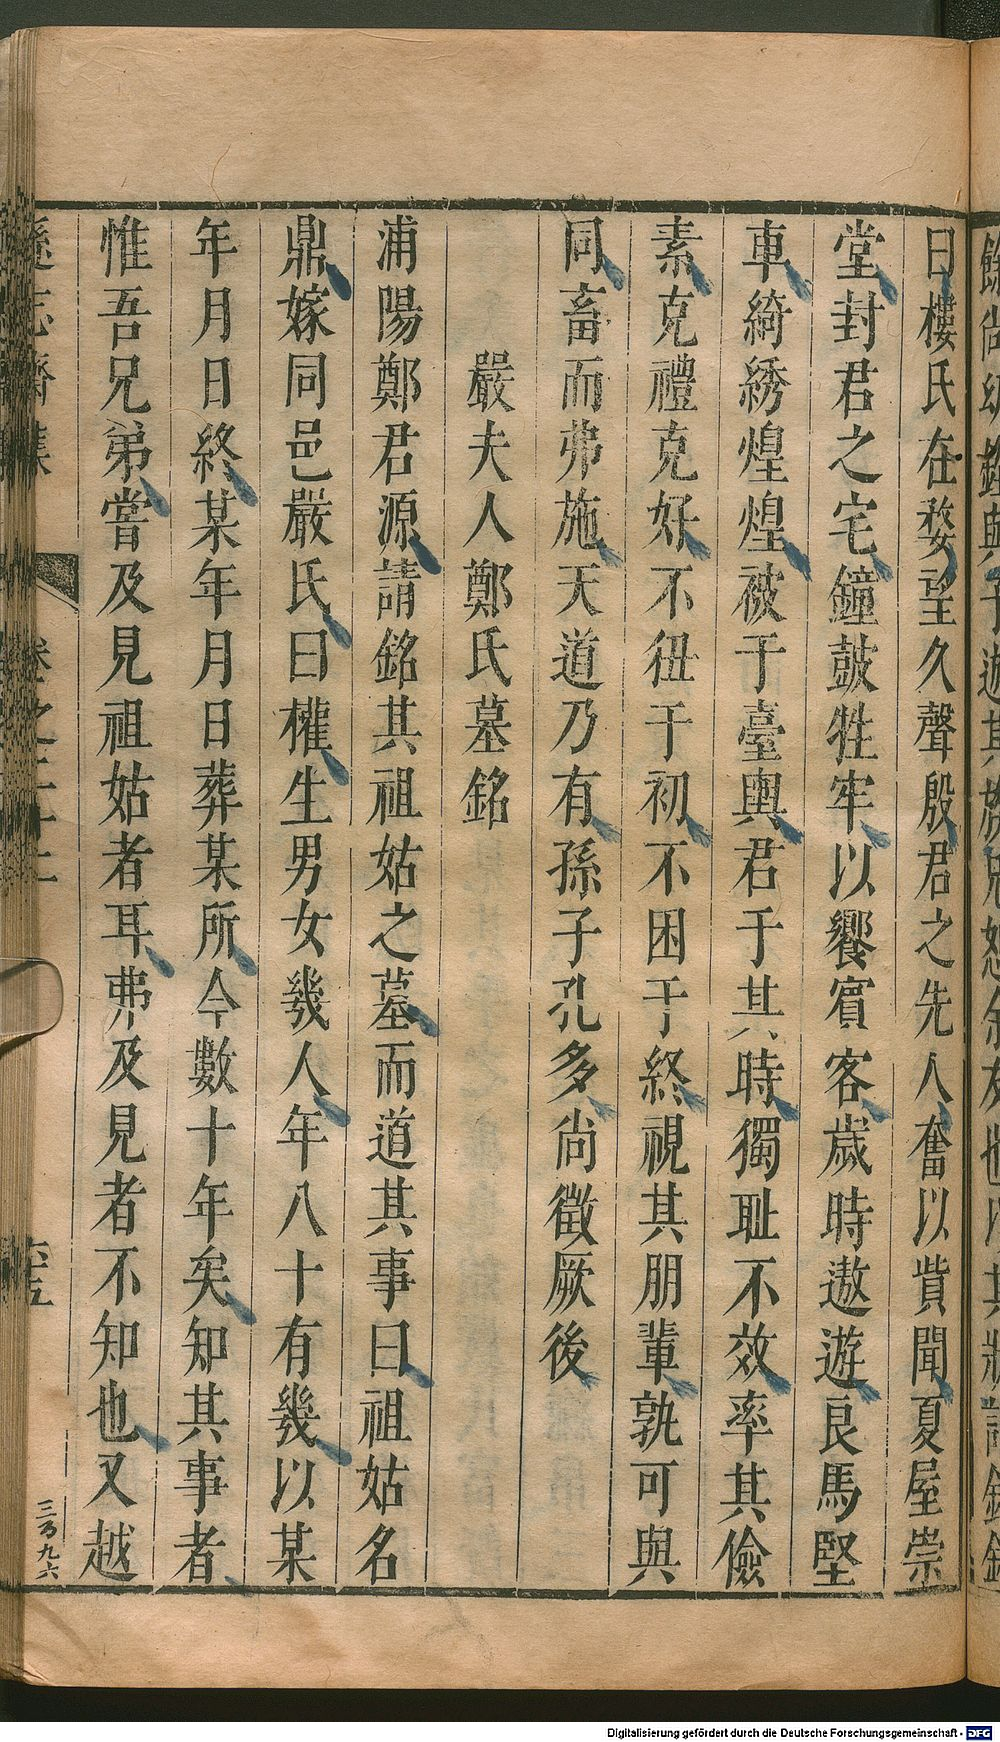 曰樓氏在婺望久聲殷君之先人奮以貲聞夏屋崇
堂封君之宅鐘鼓牲牢以饗賓客歲時遨遊良馬堅
車綺綉煌煌被于臺輿君于其時獨耻不效率其儉
素克禮克好不徂于初不困于終視其朋輩孰可與
同畜而弗施天道乃有孫子孔多尚徵厥後
嚴夫人鄭氏墓銘
浦陽鄭君源請銘其祖姑之墓而道其事曰祖姑名
鼎嫁同邑嚴氏曰權生男女幾人年八十有幾以某
年月日終某年月日葬某所今數十年矣知其事者
惟吾兄弟嘗及見祖姑者耳弗及見者不知也又越
遜志齋集
卷之二十二
六五
三百九六
Digitalisierung gefördert durch die Deutsche Forschungsgemeinschaft - DFG